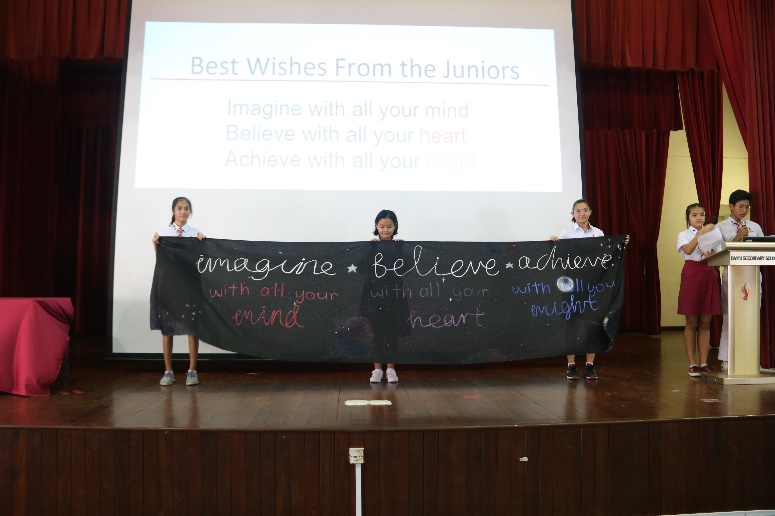 Best Wishes From the Juniors
Imagine with all your mind
Believe with all your heart
Achieve with all your might
imagine ★ believe ★ achieve
with all your with all your with all you
mind heart might
DAMAI SECONDARY SCHOOL